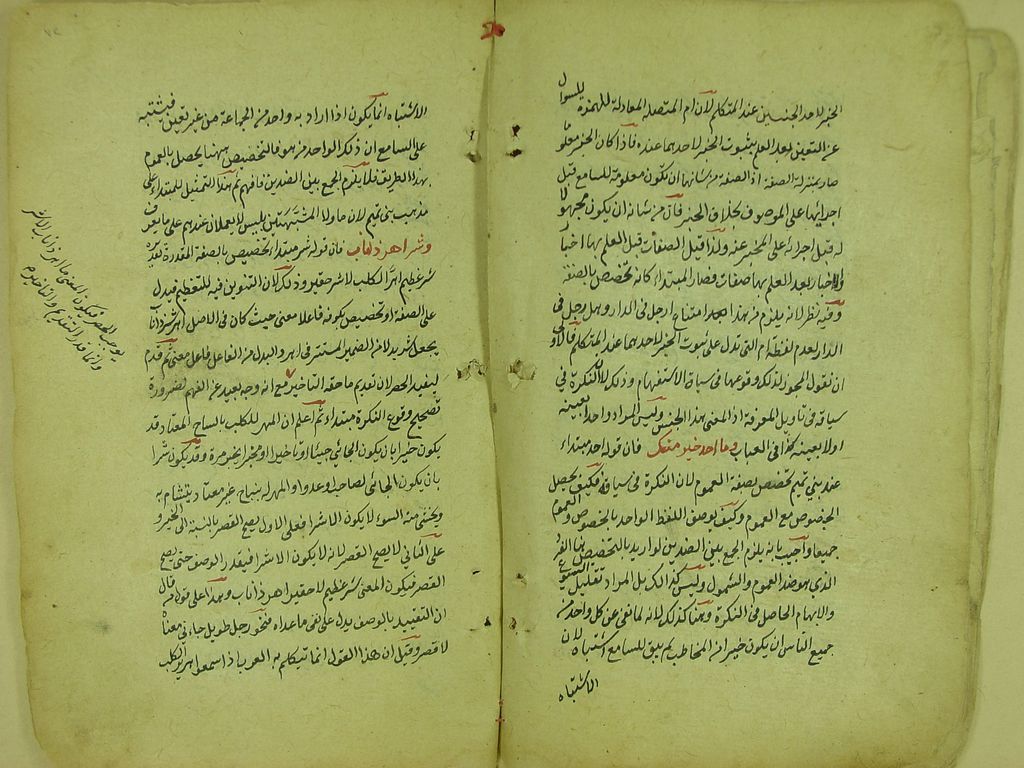 الخبر لاحد الجنسين عند المتكلم لان ام المتصلة المعادلة للهمزة للسوال
عن التعيين بعد العلم بثبوت الخبر لاحدهما عنده فاذا كان الخبر معلوما
صار بمنزلة الصفة اذ الصفة من شانها ان تكون معلومة للسامع قبل
اجرائها على الموصوف بخلاف الخبر فان من شانه ان يكون مجهولا
له قبل اجرائه على المخبر عنه ولذا قيل الصفات قبل العلم بها اخبار
والاخبار بعد العلم بها صفات فصار المبتدا كانه تخصص بالصفة
وفيه نظر لانه يلزم من هذا امتناع ارجل في الدار وهل رجل في
الدار لعدم لفظة ام التي تدل على ثبوت الخبر لاحدهما عند المتكلم فالاولى
ان نقول المجوز لذلك وقوعها في سياق الاستفهام وذلك لان النكرة في
سياقه في تاويل المعرفة اذ المعنى هذا الجنس وليس المراد واحدا بعينه
اولا بعينه كذا في العباب وما احد خير منك فان قوله احد مبتداء
عند بني تميم تخصص بصفة العموم لان النكرة في سياق فكيف يحصل
الخصوص مع العموم وكيف يوصف اللفظ الواحد بالخصوص والعموم
جميعا واجيب بانه يلزم الجمع بين الضدين لو اريد بالتخصيص هنا
الذي هو ضد العموم والشمول وليس كذلك بل المراد تقليل الشيوع
والابهام الحاصل في النكرة وهنا كذلك لانه لما نفى عن كل واحد من
جميع الناس ان يكون خيرا من المخاطب لم يبق للسامع اشتباه لان
الاشتباه
الاشتباه انما يكون اذا اراد به واحد من الجماعة من غير تعين فيشتبه
على السامع ان ذلك الواحد من هو فالتخصيص ههنا يحصل بالعموم
بهذا الطريق فلا يلزم الجمع بين الضدين فافهم ثم هذا التمثيل للمبتدا على
مذهب بني تميم لان ما ولا المشبهتين بليس لا يعملان عندهم على ما يعرف
وشر اهر ذا ناب فان قوله شر مبتداء تخصيص بالصفة المقدرة تقديره
شر عظيم اهر الكلب لا شر حقير وذلك لان التنوين فيه للتعظيم فيدل
على الصفة او تخصيص بكونه فاعلا معنى حيث كان في الاصل اهر شر ذا ناب
يجعل شر بدلا من الضمير المستتر في اهر والبدل من الفاعل فاعل معنى ثم قدم
ليفيد الحصر لان تقديم ما حقه التاخير مع انه وجه بعيد عن الفهم لضرورة
تصحيح وقوع النكرة مبتداء ثم اعلم ان المهر للكلب بالنباح المعتاد قد
يكون خيرا بان يكون الجائي حبيبا او مخبرا بخير مرة وقد يكون شرا
بان يكون الجائي لصا او عدوا والمهر له بنباح غير معتاد يتشام به
ويختفى منه السوء لا يكون الا شرا فعلى الاول يصح القصر بالنسبة الى الخير و
على الثاني لا يصح القصر لانه لا يكون الا شرا فيقدر الوصف حتى يصح
القصر فيكون المعنى شر عظيم لا حقير اهر ذا ناب وهذا على قول من قال
ان التقييد بالوصف يدل على نفي ما عداه فنحو رجل طويل جاءني معناه
لا قصير وقيل ان هذا القول انما تتكلم به العرب اذا سمعوا هرير الكلب
يوجب الحصر فيكون المعنى ما اهر ذا ناب الا شر
وانما قدر التقديم والتاخير